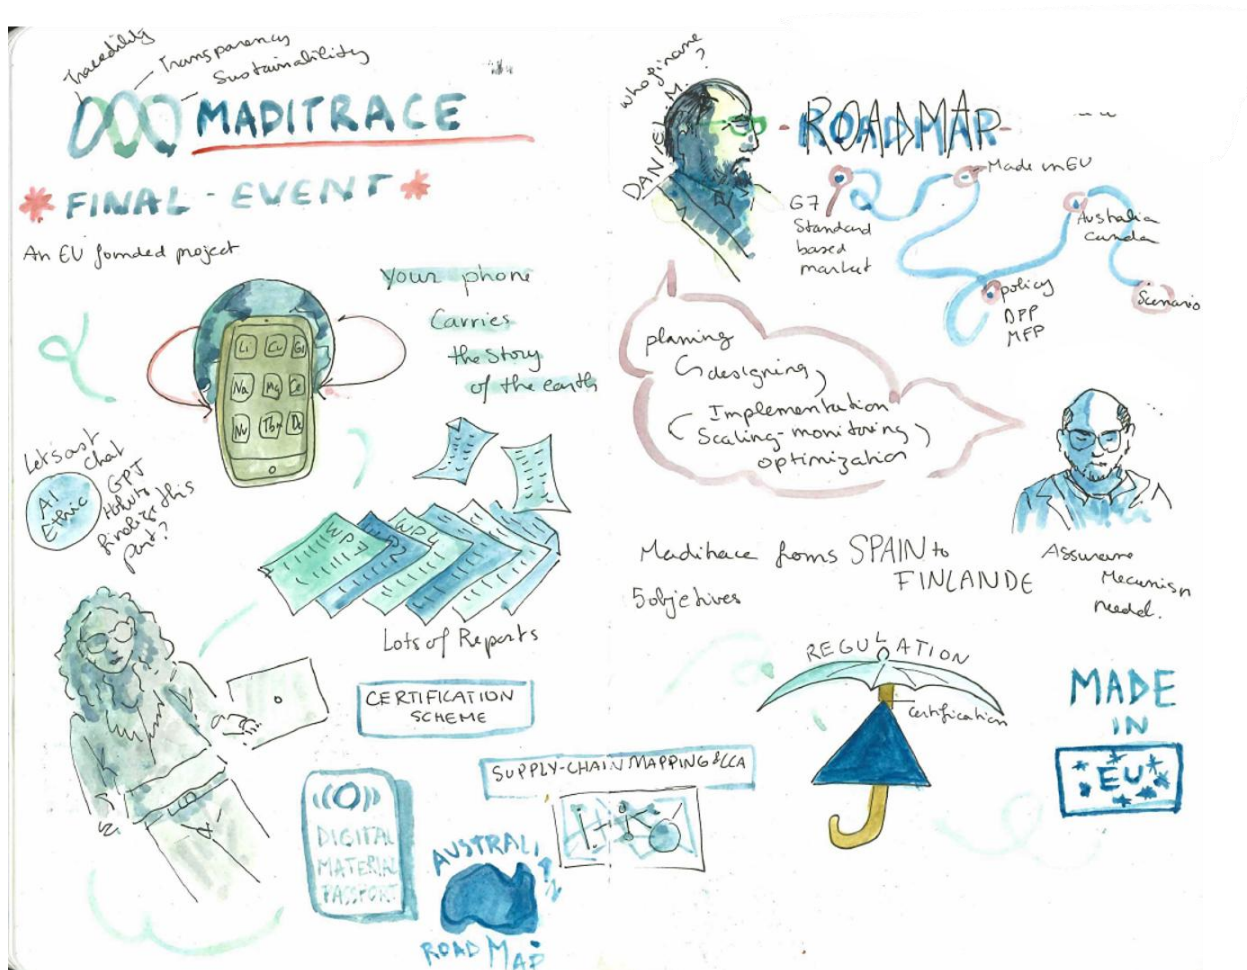 Tracebility
Transparency
Sustainability
MADITRACE
* FINAL - EVENT *
An EU founded project
Your phone
Carries
the Story
of the earth
Li Cu
Na Mg Ce
Tb
Let's ask
Chat
GPT
How to
finalize this
part?
AI
Ethic
WP1
WP2
WP4
Lots of Reports
CERTIFICATION
SCHEME
SUPPLY-CHAIN MAPPING & LCA
DIGITAL
MATERIAL
PASSPORT
AUSTRALI
ROAD MAP
who finance
?
DANIEL M.
-ROADMAP-
Made in EU
G7
Standard
based
market
Australia
Canada
policy
DPP
MFP
Scenario
planning
designing
Implementation
Scaling-monitoring
optimization
Maditrace from SPAIN to
FINLANDE
5 objetives
Assurance
Mecanism
needed.
REGULATION
Certification
MADE
IN
EU